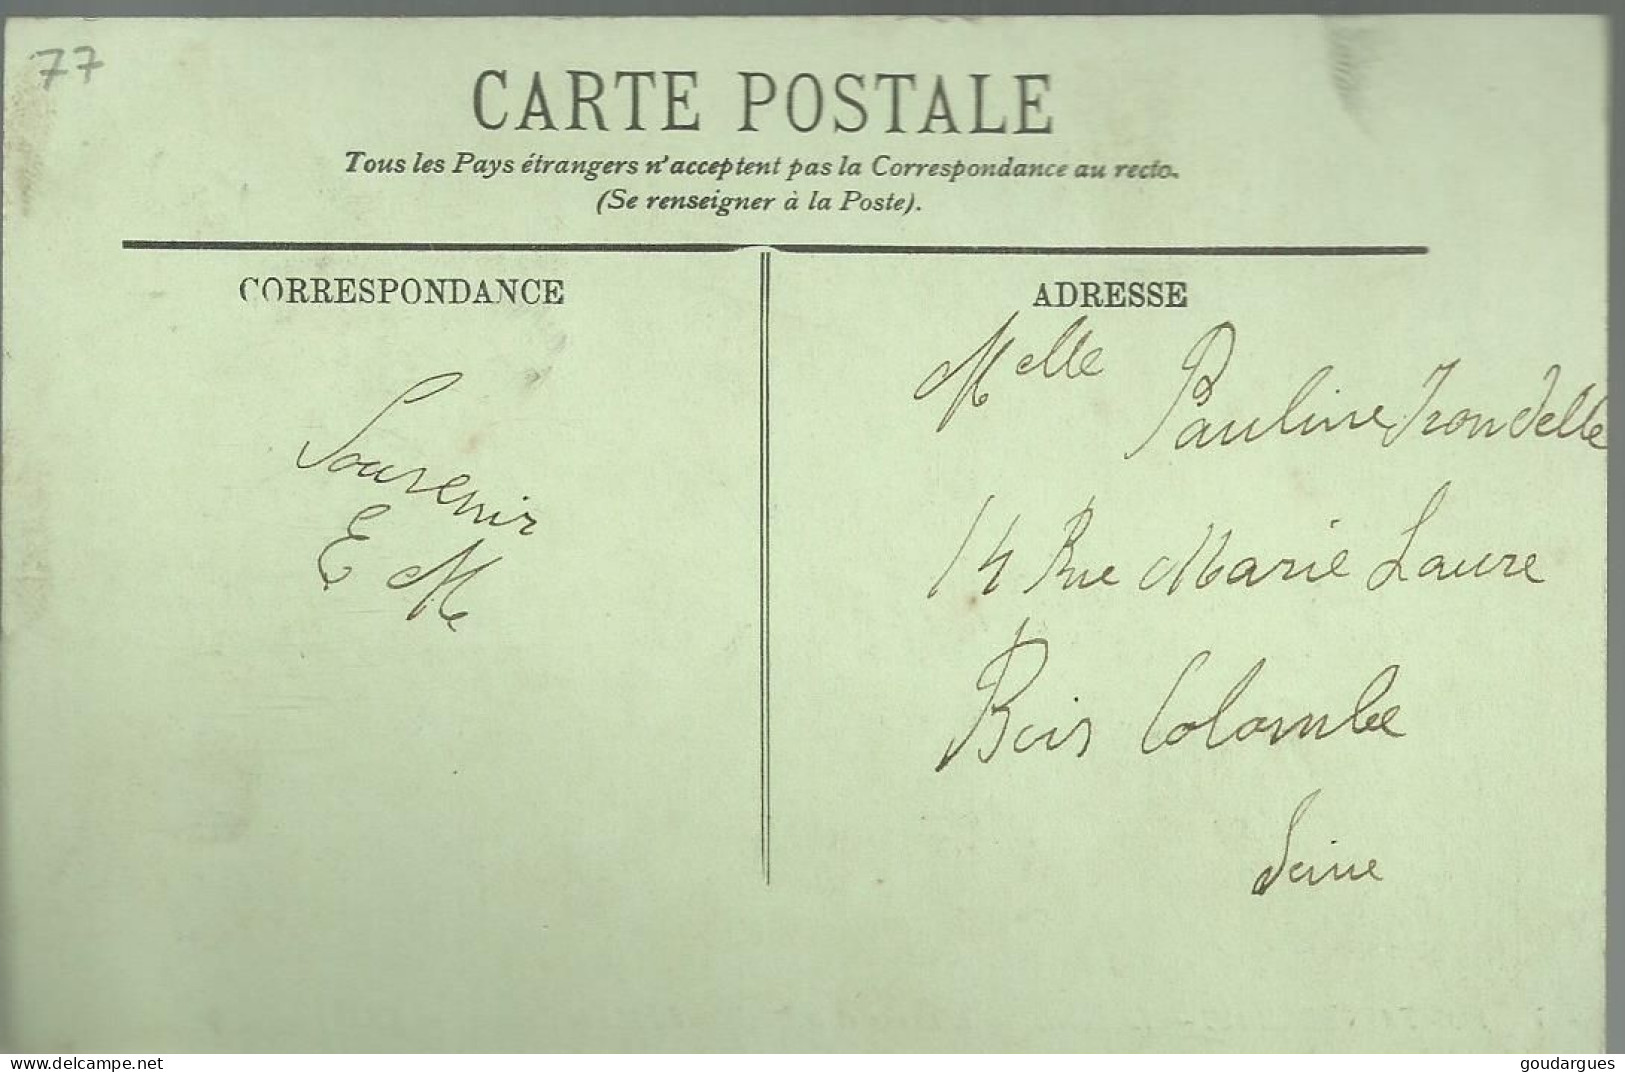 77
CARTE POSTALE
Tous les Pays étrangers n'acceptent pas la Correspondance au recto.
(Se renseigner à la Poste).
CORRESPONDANCE
Souvenir
E M
ADRESSE
Melle Pauline Trondelle
14 Rue Marie Laure
Bois Colombe
Seine
www.delcampe.net
goudargues